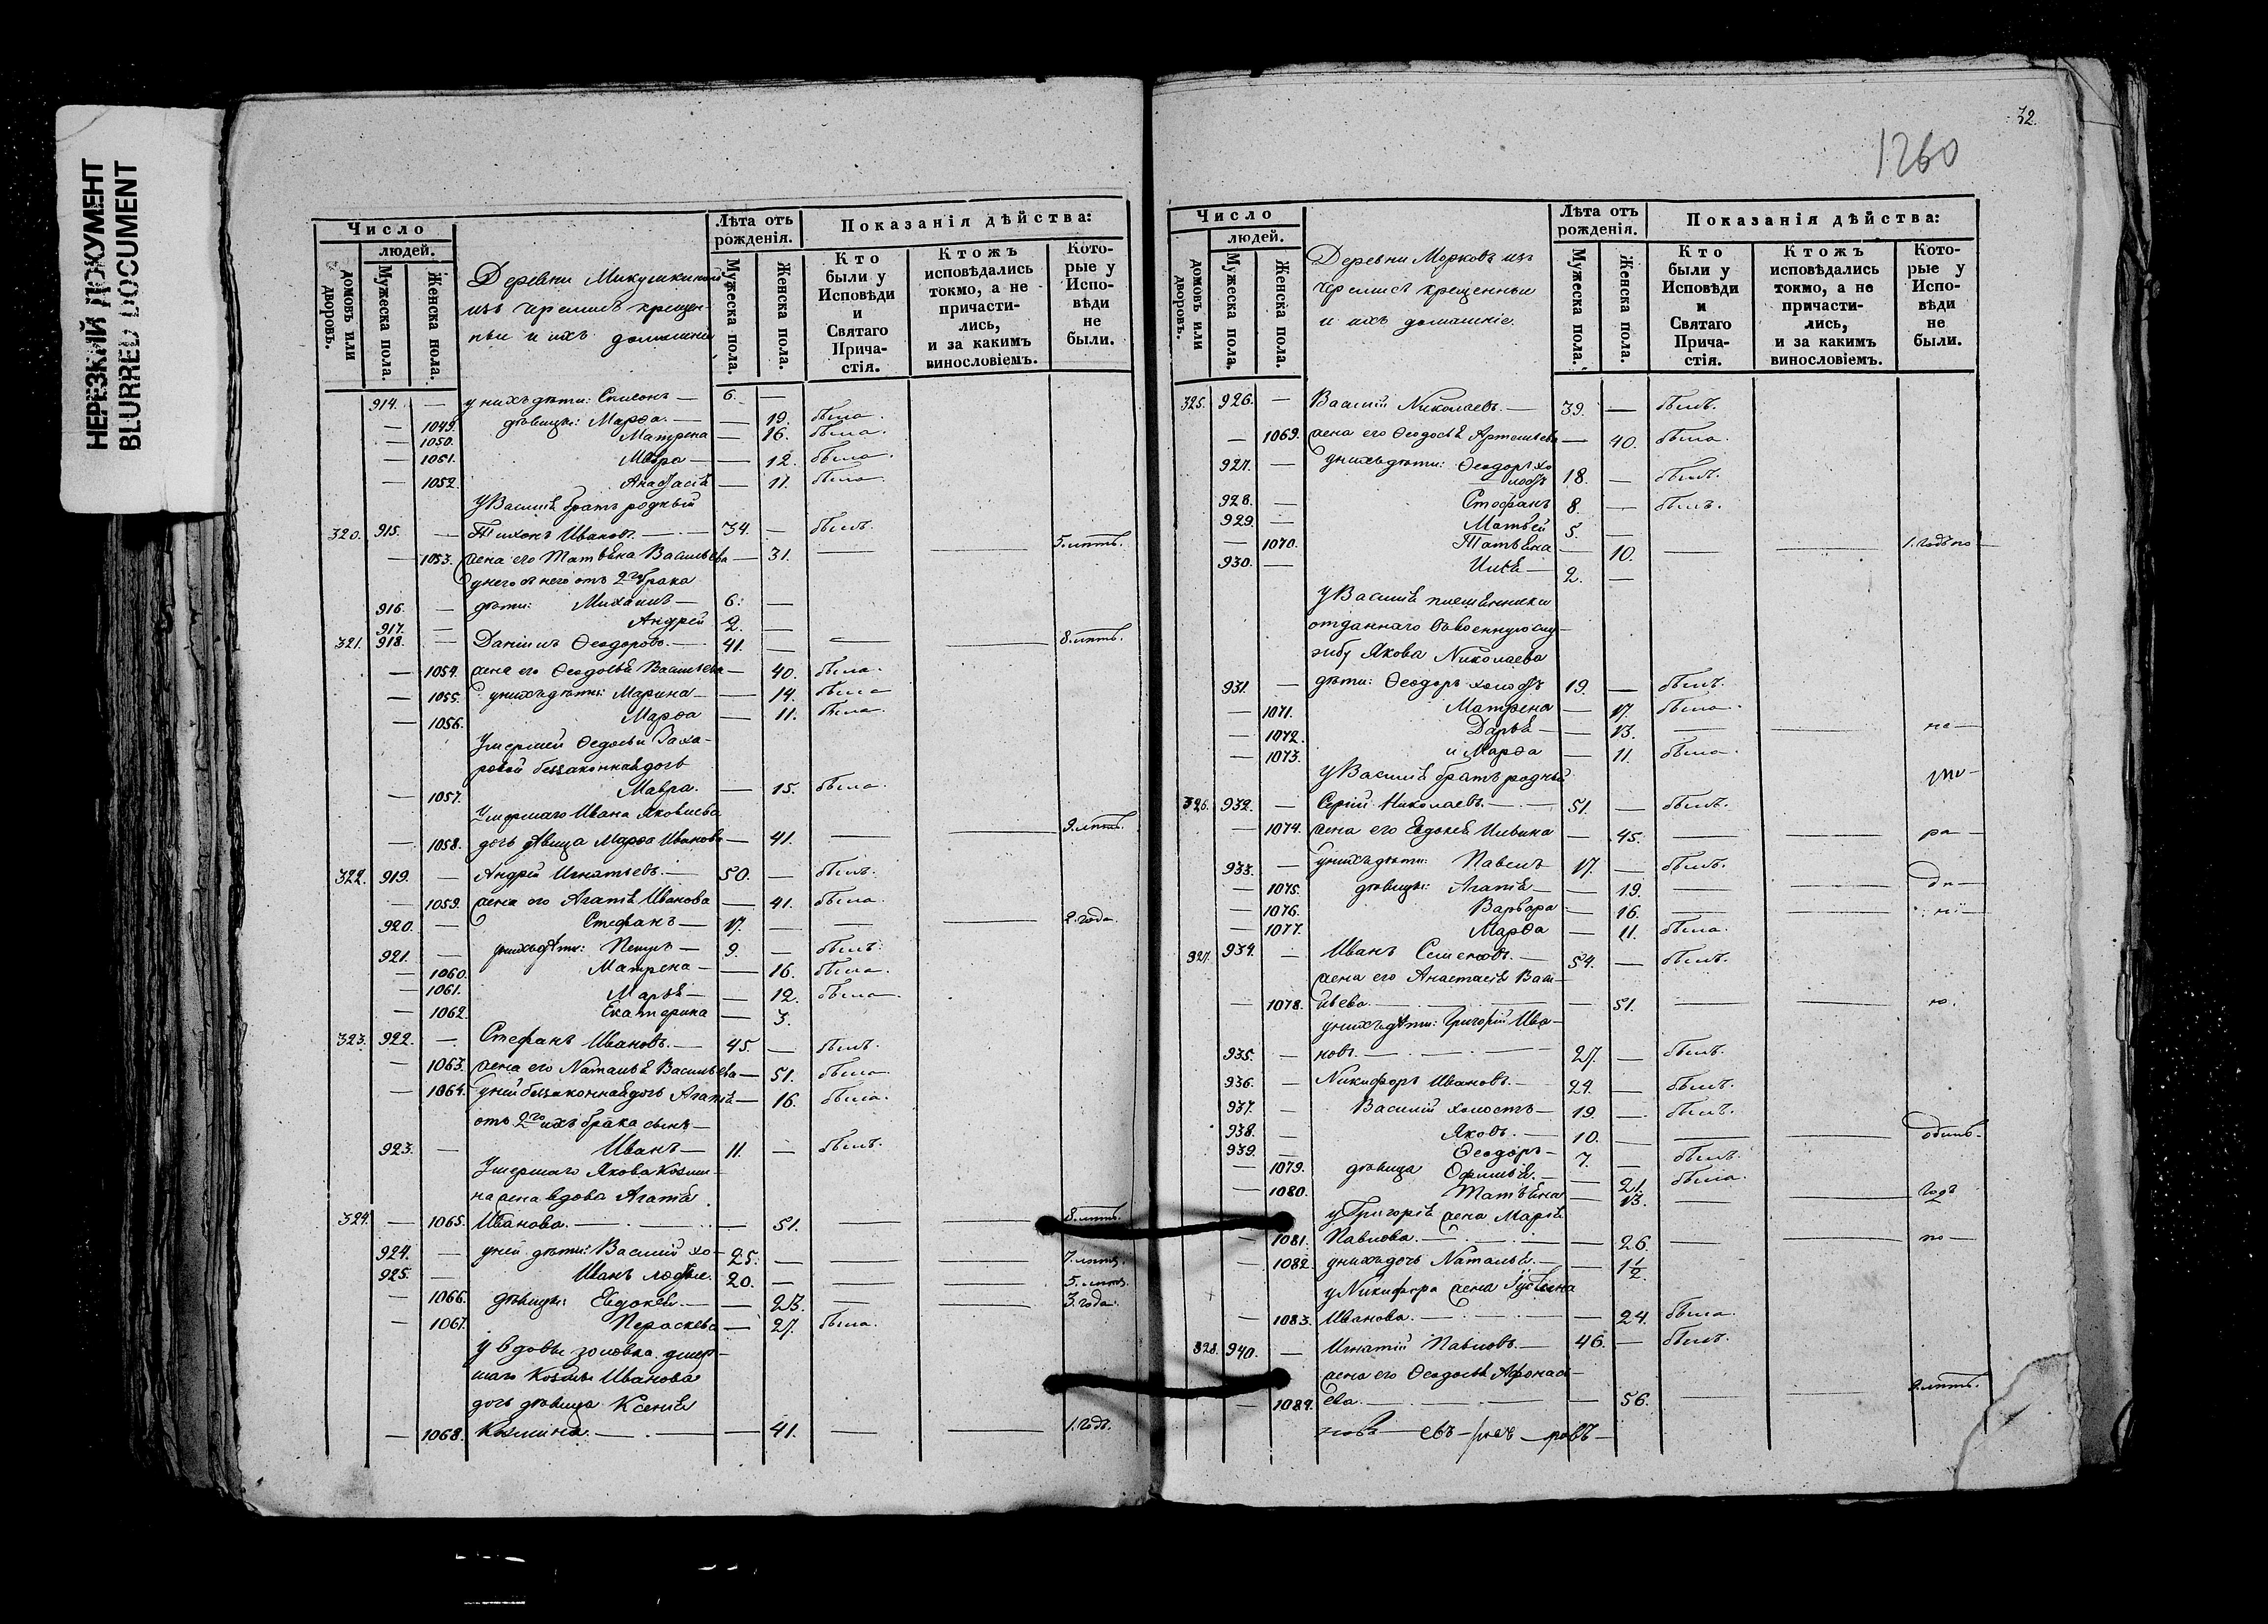 НЕРЕЗКИЙ ДОКУМЕНТ
BLURRED DOCUMENT
Число
людей.
домовъ или дворовъ.
Мужеска пола.
Женска пола.
Деревни Микушкиной
изъ черемисъ крещен-
ныи и ихъ домашніи
Лѣта отъ рожденія.
Мужеска пола.
Женска пола.
Показанія дѣйства:
Кто были у Исповѣди и Святаго Прича-стія.
Ктожъ исповѣдались токмо, а не причасти-лись, и за какимъ винословіемъ.
Кото-рые у Испо-вѣди не были.
914. — у нихъ дѣти: Симеонъ — 6. —
— 1049. дѣвицы: Марѳа — — 19. была.
— 1050. Матрена — — 16. была.
— 1051. Мавра — — 12. была.
— 1052. Анастасія — 11. была.
У Василія братъ родный
320. 915. — Тихонъ Ивановъ. — 34. — былъ.
— 1053. жена его Татьяна Васильева — 31. — — 5. лѣтъ.
у него отъ 2го брака
916. — дѣти: Михаилъ — 6. —
917. — Андрей 2. —
321. 918. — Даніилъ Ѳеодоровъ. — 41. — — — 8. лѣтъ.
— 1054. жена его Ѳеодосья Васильева — 40. была.
— 1055. у нихъ дѣти: Марина — — 14. была
— 1056. Марѳа — 11. была.
Умершей Ѳедосьи Заха-
ровой беззаконная дочь
— 1057. Мавра. — 15. была.
Умершаго Ивана Яковлева
— 1058. дочь дѣвица Марѳа Иванова — 41. — — 9. лѣтъ.
322. 919. — Андрей Игнатьевъ. — 50. — былъ.
— 1059. жена его Агапія Иванова — 41. была.
920. — Стефанъ — 17. — — — 2. года.
921. — у нихъ дѣти: Петръ — 9. — былъ.
— 1060. Матрена — — 16. была.
— 1061. Марья — — 12. была.
— 1062. Екатерина — 3.
323. 922. — Стефанъ Ивановъ. — 45. — былъ.
— 1063. жена его Наталья Васильева — 51. была
— 1064. у ней беззаконная дочь Агапія — 16. была.
отъ 2го ихъ брака сынъ —
923. — Иванъ — 11. — былъ.
Умершаго Якова Козми-
на жена вдова Агапія
324. — 1065. Иванова. — — 51. — — 8. лѣтъ.
924. — у ней дѣти: Василій хо- 25. — — — 7. лѣтъ.
925. — Иванъ лосты. 20. — — — 5. лѣтъ.
— 1066. дѣвицы: Евдокія — — 23. — — 3. года.
— 1067. Параскева — 27. была.
у вдовы золовка умер-
шаго Козмы Иванова
дочь дѣвица Ксенія
— 1068. Козмина. — — 41. — — 1. годъ.
32.
1260
Число
людей.
домовъ или дворовъ.
Мужеска пола.
Женска пола.
Деревни Морковъ изъ
черемисъ крещенныи
и ихъ домашніе.
Лѣта отъ рожденія.
Мужеска пола.
Женска пола.
Показанія дѣйства:
Кто были у Исповѣди и Святаго Прича-стія.
Ктожъ исповѣдались токмо, а не причасти-лись, и за какимъ винословіемъ.
Кото-рые у Испо-вѣди не были.
325. 926. — Василій Николаевъ — 39. — былъ.
— 1069. жена его Ѳеодосья Артемьева — 40. была.
927. — у нихъ дѣти: Ѳеодоръ хо
лостъ 18. — былъ.
928. — Стефанъ 8. — былъ.
929. — Матвей 5. —
— 1070. Татьяна — 10. — — 1. годъ по —
930. — Илья — 2. —
У Василія племянники
отданнаго въ военную слу-
жбу Якова Николаева
931. — дѣти: Ѳеодоръ холостъ 19. — былъ.
— 1071. Матрена — 17. была.
— 1072. Дарья — — 13. — — не —
— 1073. и Марѳа — 11. была.
У Василія братъ родный
326. 932. — Сергій Николаевъ. — 51. — былъ.
— 1074. жена его Евдокія Ильина — 45. — — ра —
933. — у нихъ дѣти: Павелъ 17. — былъ.
— 1075. дѣвицы: Агапія — — 19. — —
— 1076. Варвара — 16. — —
— 1077. Марѳа — 11. была.
327. 934. — Иванъ Семеновъ. — 54. — былъ.
жена его Анастасія Васи-
— 1078. льева. — — 51. — — ю.
у нихъ дѣти: Григорій Ива-
935. — новъ. — 27. — былъ.
936. — Никифоръ Ивановъ. — 24. — былъ.
937. — Василій холостъ — 19. — былъ.
938. — Яковъ. — 10. — — —
939. — Ѳеодоръ — 7. — былъ.
— 1079. дѣвица Офимія. — — 21. была.
— 1080. Татьяна — 13. — — годъ
у Григорія жена Марія
— 1081. Павлова. — — 26. — — по —
— 1082. у нихъ дочь Наталья. — — 1½.
у Никифора жена Іустина
— 1083. Иванова. — — 24. была.
328. 940. — Игнатій Павловъ. — 46. — былъ.
жена его Ѳеодосья Афонась-
— 1084. ева. — — 56. — — 2. лѣтъ.